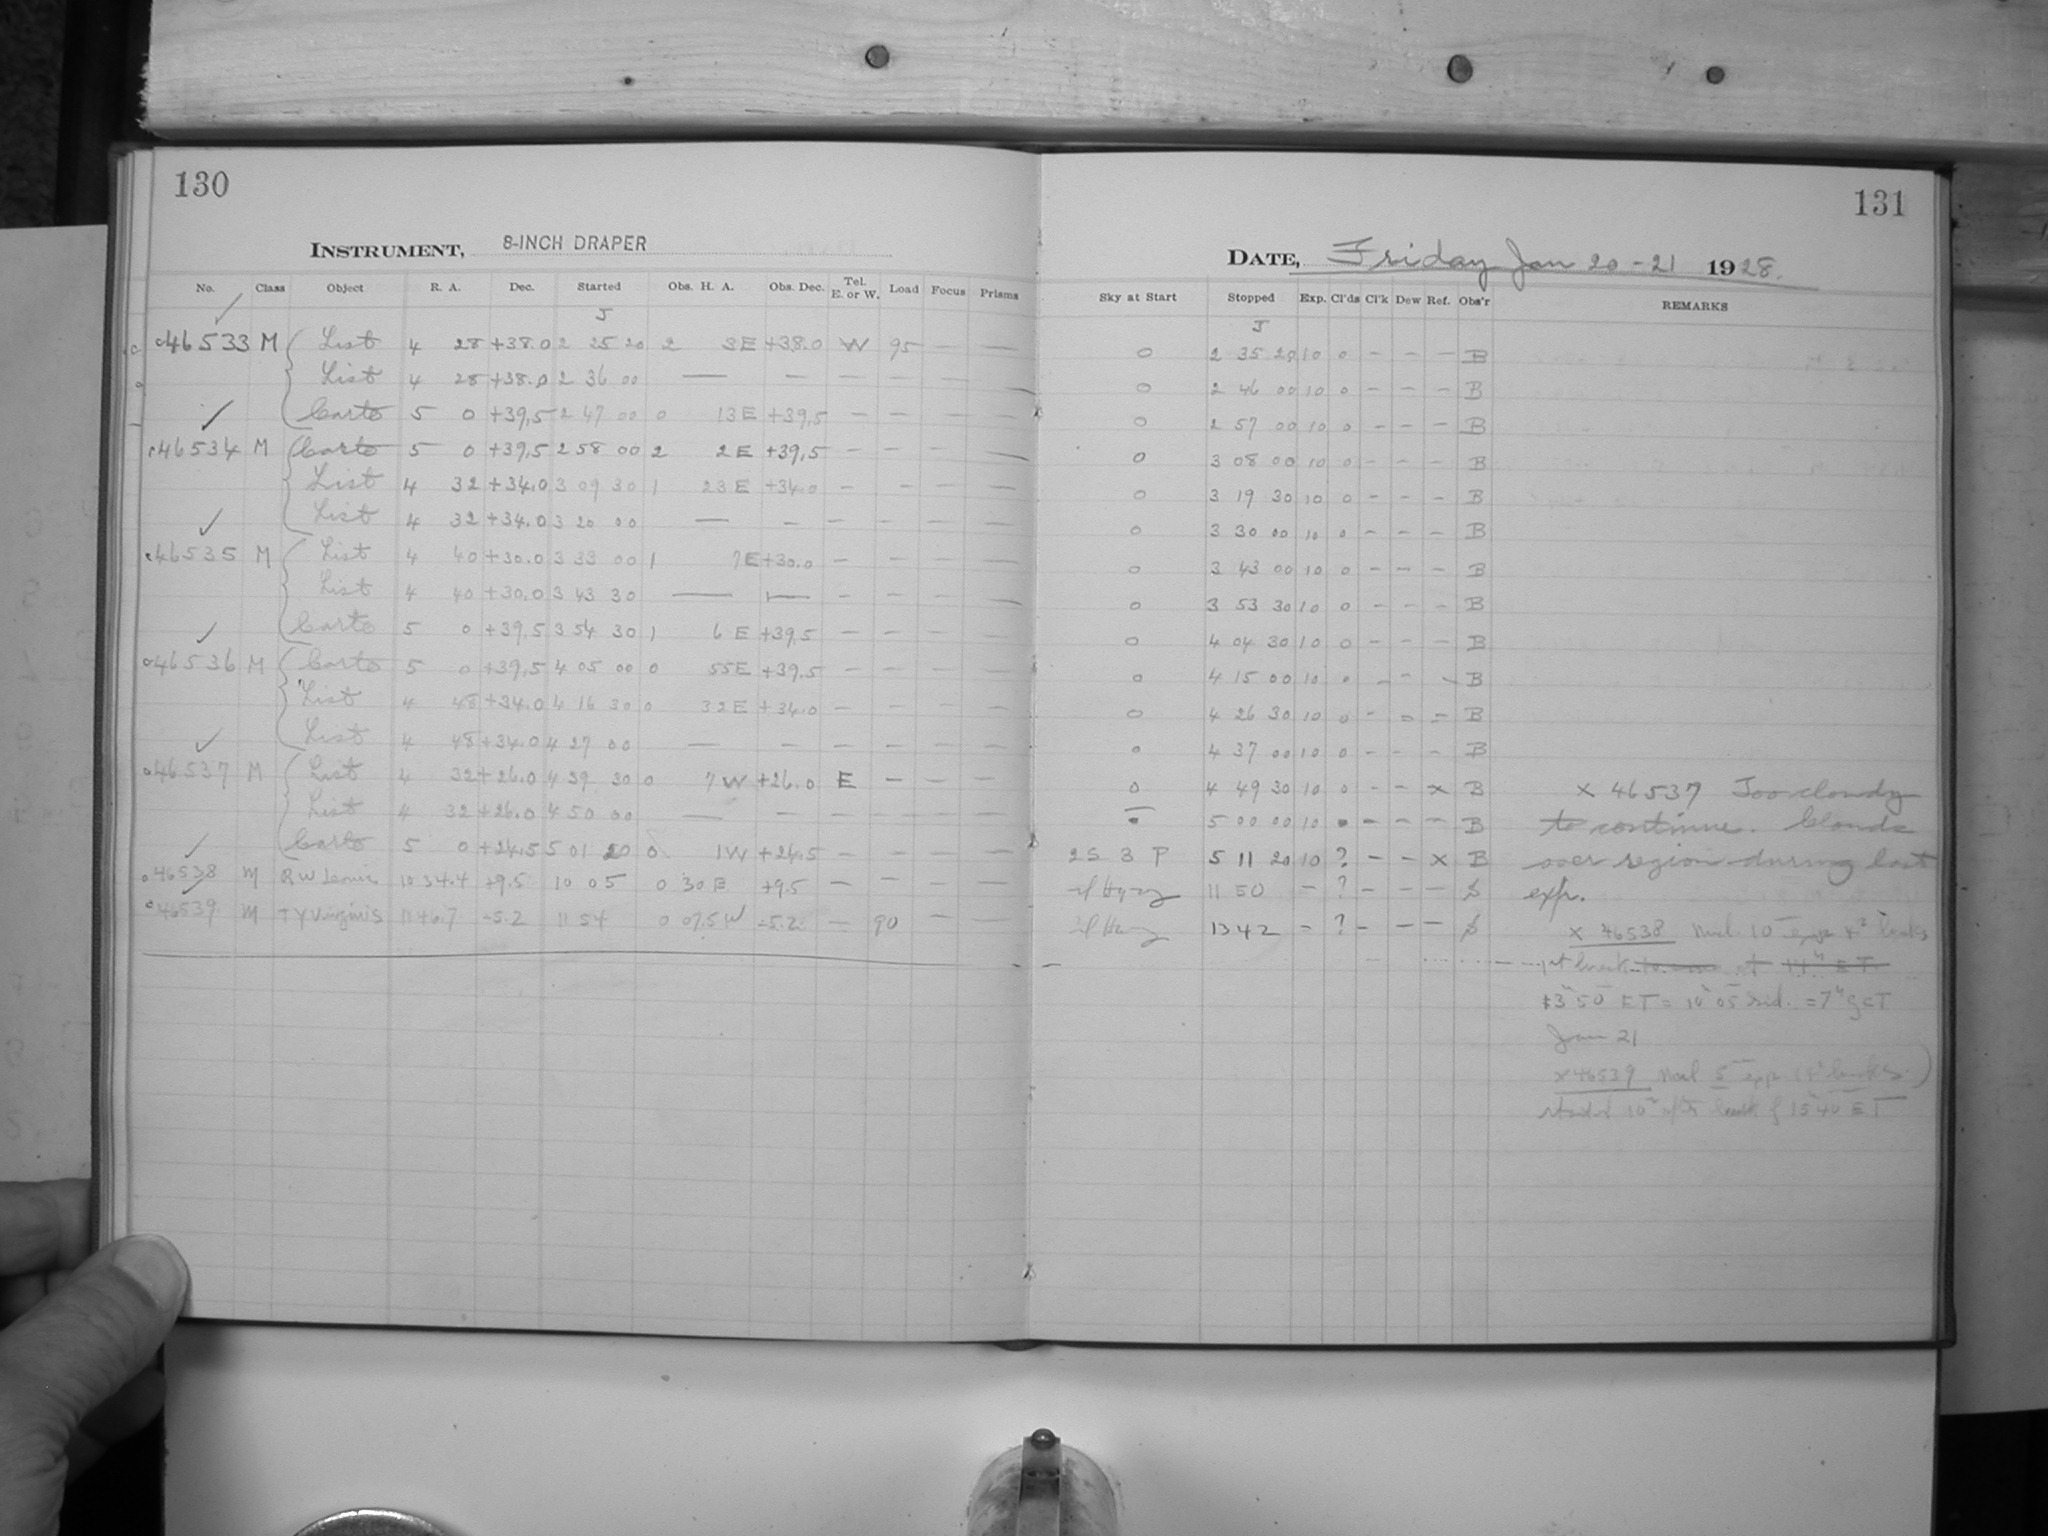 130
131
INSTRUMENT, 8-INCH DRAPER
DATE, Friday Jan 20-21 1928.
No. Class Object R. A. Dec. Started Obs. H. A. Obs. Dec. Tel. E. or W. Load Focus Prisms
Sky at Start Stopped Exp. Cl'ds Cl'k Dew Ref. Obs'r REMARKS
J J
46533 M List 4 28 +38.0 2 25 20 2 3 E +38.0 W 95 — — 0 2 35 20 10 0 - - - B
List 4 28 +38.0 2 36 00 — — — — — — 0 2 46 00 10 0 - - - B
Carto 5 0 +39.5 2 47 00 0 13 E +39.5 — — — — 0 2 57 00 10 0 - - - B
46534 M Carto 5 0 +39.5 2 58 00 2 2 E +39.5 — — — — 0 3 08 00 10 0 - - - B
List 4 32 +34.0 3 09 30 1 23 E +34.0 — — — — 0 3 19 30 10 0 - - - B
List 4 32 +34.0 3 20 00 — — — — — — 0 3 30 00 10 0 - - - B
46535 M List 4 40 +30.0 3 33 00 1 7 E +30.0 — — — — 0 3 43 00 10 0 - - - B
List 4 40 +30.0 3 43 30 — — — — — — 0 3 53 30 10 0 - - - B
Carto 5 0 +39.5 3 54 30 1 6 E +39.5 — — — — 0 4 04 30 10 0 - - - B
46536 M Carto 5 0 +39.5 4 05 00 0 55 E +39.5 — — — — 0 4 15 00 10 0 - - - B
List 4 48 +34.0 4 16 30 0 32 E +34.0 — — — — 0 4 26 30 10 0 - 0 - B
List 4 48 +34.0 4 27 00 — — — — — — 0 4 37 00 10 0 - - - B
46537 M List 4 32 +26.0 4 39 30 0 7 W +26.0 E — — — 0 4 49 30 10 0 - - x B x 46537 Too cloudy
List 4 32 +26.0 4 50 00 — — — — — — 5 00 00 10 - - - B to continue. Clouds
Carto 5 0 +24.5 5 01 20 0 1 W +24.5 — — — — 2 S 3 P 5 11 20 10 ? - - x B over region during last
46538 M R W Leonis 10 34.4 +9.5 10 05 0 30 E +9.5 — — — — 11 50 - ? - - - S expr.
46539 M TY Virginis 11 46.7 -5.2 11 54 0 07.5 W -5.2 — 90 — — 13 42 - ? - - - S
x 46538
Jan 21
x 46539